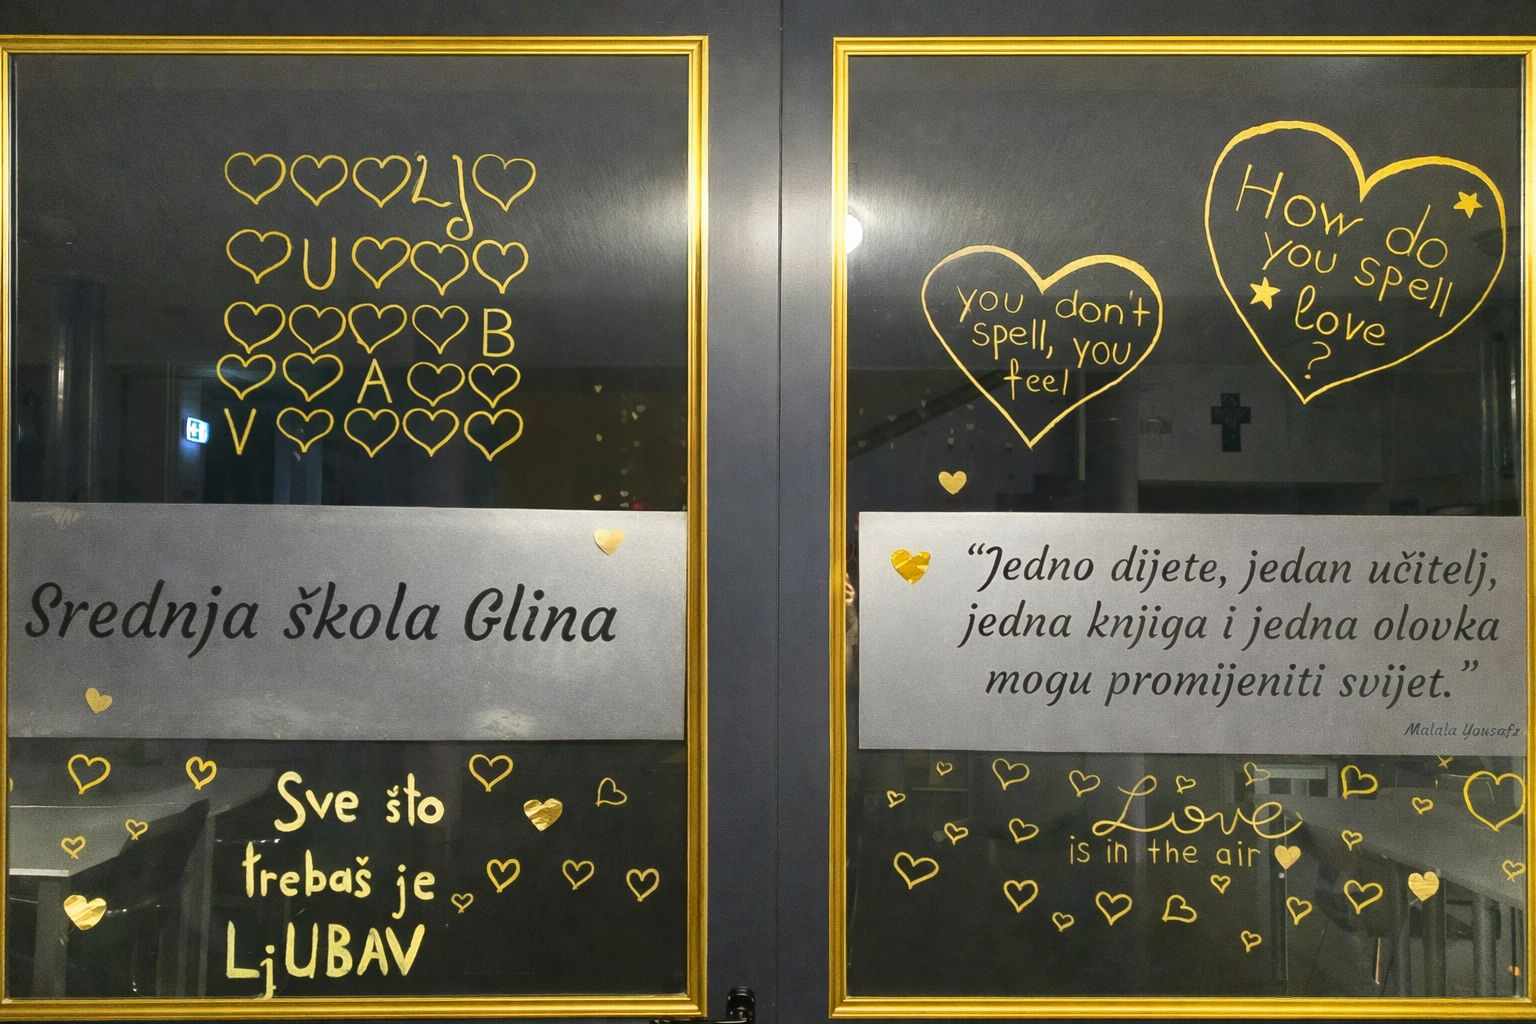 ♡♡♡Lj♡
♡U♡♡♡
♡♡♡♡B
♡♡A♡♡
V♡♡♡♡
Srednja škola Glina
Sve što
trebaš je
LjUBAV
How do
you spell
love
?
you don't
spell, you
feel
“Jedno dijete, jedan učitelj,
jedna knjiga i jedna olovka
mogu promijeniti svijet.”
Malala Yousafz
Love
is in the air